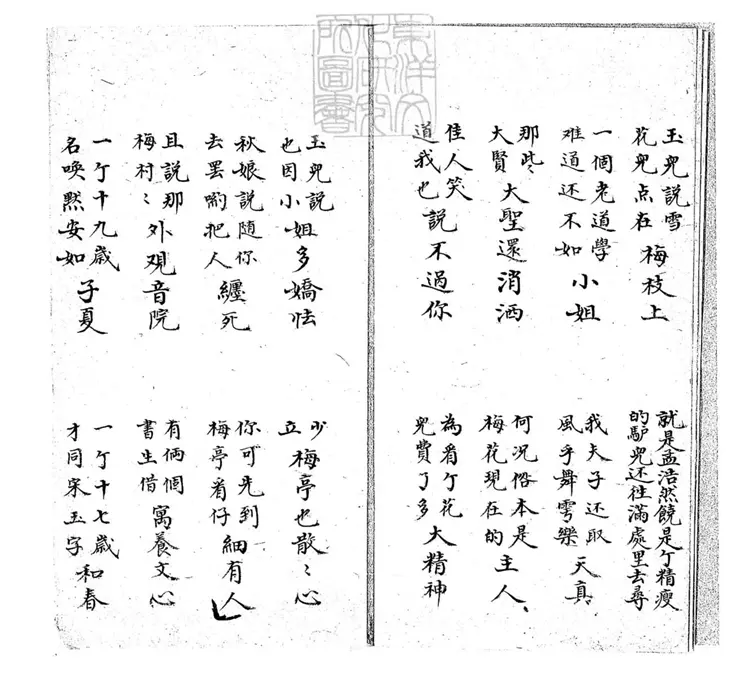 東洋文
化研究
所圖書
玉兒說雪
花兒点在
梅枝上
就是孟浩然饒是亇精瘦
的驴兒还往滿處里去尋
一個老道學
难道还不如
小姐
我夫子还取
風乎舞雩樂
天真
那些
大賢
大聖還消洒
何况俗本是
梅花現在的
主人
佳人笑
道我也
說不過你
為看亇花
兒費了多
大精神
玉兒說
也因小
姐多嬌怯
少
立
梅亭也散〻心
秋娘說随你
去罢喲把人
纏死
你可先到
梅亭看仔
細有人
且說那
梅村〻
外观音院
有俩個
書生借
寓養文心
一亇十九歲
名喚黙安如
子夏
一亇十七歲
才同宋玉字
和春